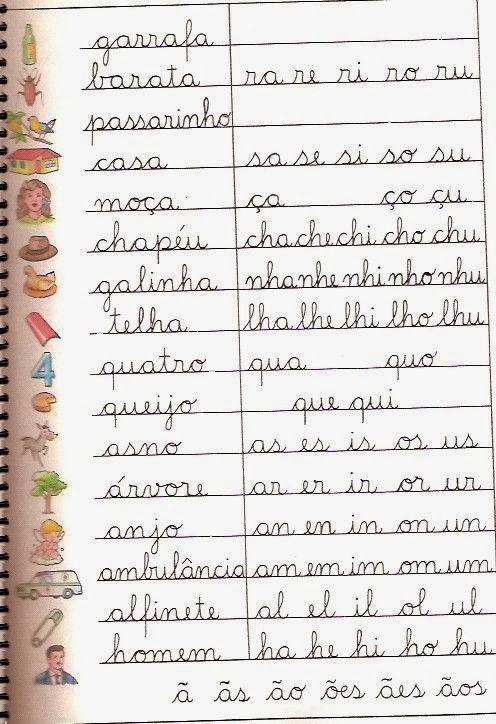 garrafa
barata ra re ri ro ru
passarinho
casa sa se si so su
moça ça ço çu
chapéu cha che chi cho chu
galinha nha nhe nhi nho nhu
telha lha lhe lhi lho lhu
4 quatro qua quo
queijo que qui
asno as es is os us
árvore ar er ir or ur
anjo an en in on un
ambulância am em im om um
alfinete al el il ol ul
homem ha he hi ho hu
ã ãs ão ões ães ãos